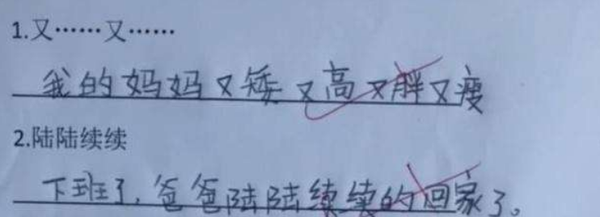 1.又……又……
我的妈妈又矮又高又胖又瘦
2.陆陆续续
下班了,爸爸陆陆续续的回家了。